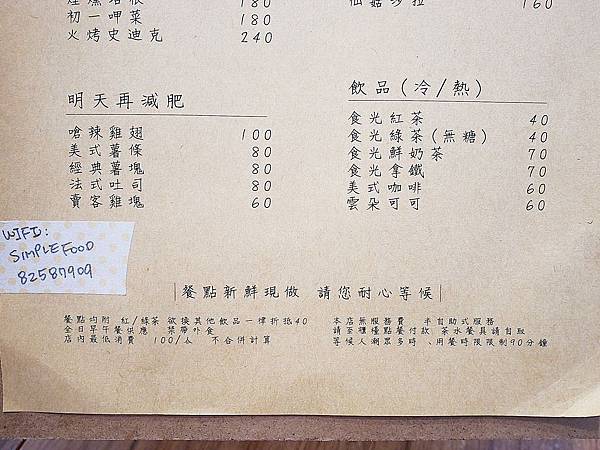 180
初一呷菜 180
火烤史迪克 240
160
明天再減肥
嗆辣雞翅 100
美式薯條 80
經典薯塊 80
法式吐司 80
賣客雞塊 60
飲品(冷/熱)
食光紅茶 40
食光綠茶(無糖) 40
食光鮮奶茶 70
食光拿鐵 70
美式咖啡 60
雲朵可可 60
WIFI:
SIMPLEFOOD
82587909
餐點新鮮現做 請您耐心等候
餐點均附 紅/綠茶 欲換其他飲品一律折抵40
全日早午餐供應 禁帶外食
店內最低消費 100/人 不合併計算
本店無服務費 半自助式服務
請至櫃檯點餐付款 茶水餐具請自取
等候人潮眾多時、用餐時限限制90分鐘